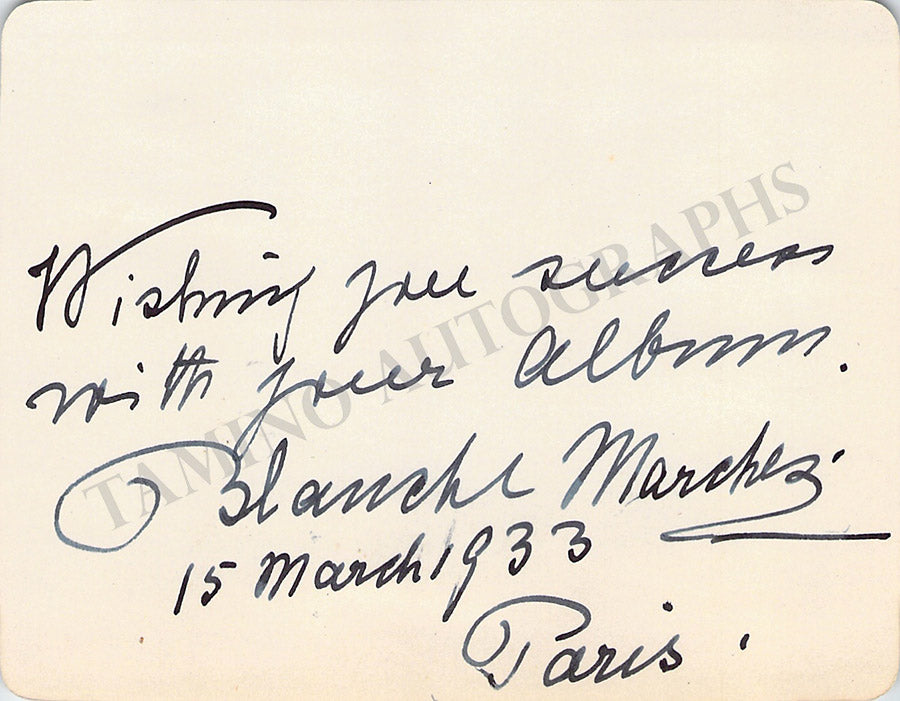 Wishing you success
with your Album.
Blanche Marchesi
15 March 1933
Paris.
TAMINO AUTOGRAPHS